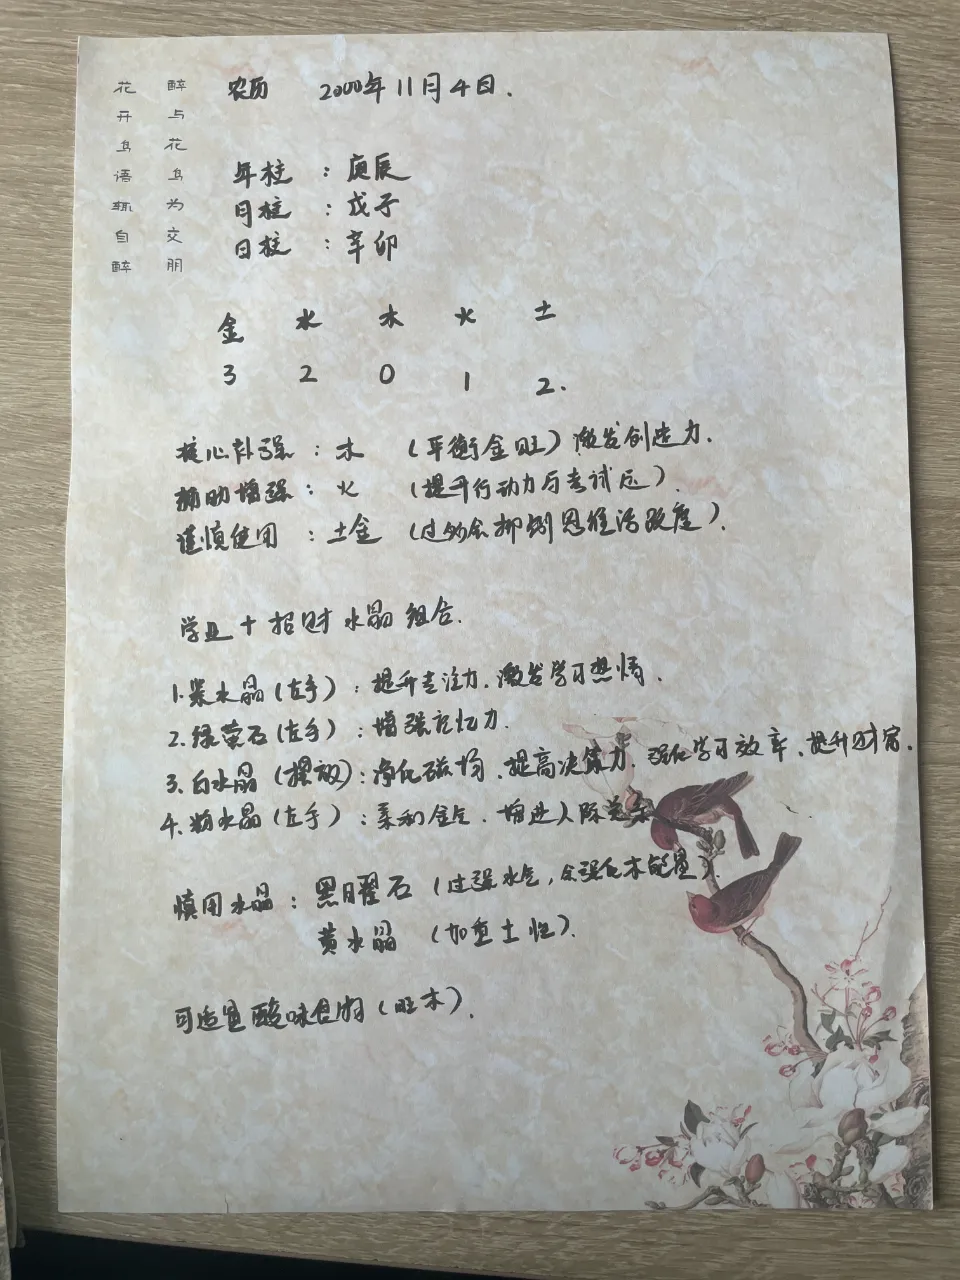 醉与花鸟为交朋
花开鸟语辄自醉
农历 2000年11月4日.
年柱 : 庚辰
月柱 : 戊子
日柱 : 辛卯
金 水 木 火 土
3 2 0 1 2.
核心补强 : 木 (平衡金旺) 激发创造力.
辅助增强 : 火 (提升行动力与考试运).
谨慎使用 : 土金 (过多会抑制思维活跃度).
学业 + 招财 水晶 组合.
1.紫水晶(左手) : 提升专注力. 激发学习热情.
2.绿萤石(左手) : 增强记忆力.
3.白水晶 (摆放) : 净化磁场、提高决策力、强化学习效率、提升财富.
4.粉水晶(左手) : 柔和金气. 增进人际关系
慎用水晶 : 黑曜石 (过强水气,会强化木能量).
黄水晶 (加重土性).
可适宜酸味食物(旺木).